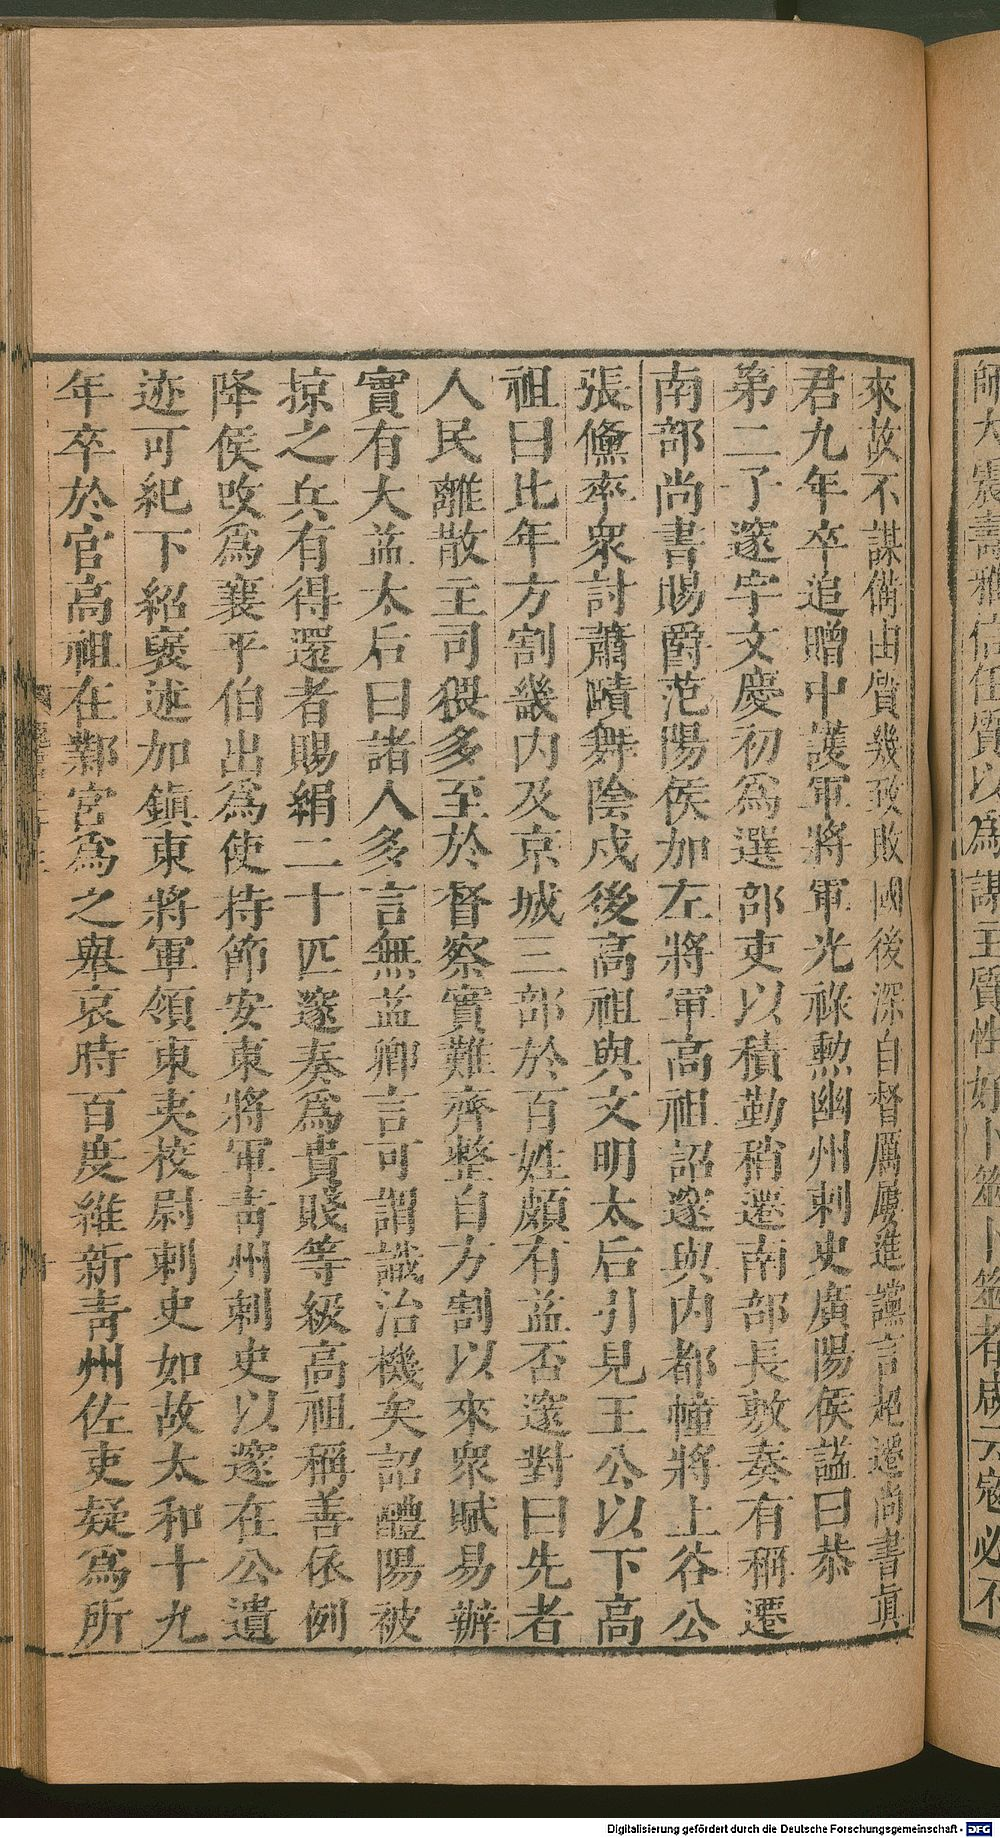 師大震壽雅信任質以為謀主質性好卜筮卜筮者咸云寇必不
來故不謀備由質幾致敗國後深自督厲屢進讜言超遷尚書真
君九年卒追贈中護軍將軍光祿勲幽州刺史廣陽侯謚曰恭
第二子邃字文慶初為選部吏以積勤稍遷南部長敷奏有稱遷
南部尚書賜爵范陽侯加左將軍高祖詔邃與内都幢將上谷公
張儵率衆討蕭賾舞陰戍後高祖與文明太后引見王公以下高
祖曰比年方割畿内及京城三部於百姓頗有益否邃對曰先者
人民離散主司猥多至於督察實難齊整自方割以來衆賦易辦
實有大益太后曰諸人多言無益卿言可謂識治機矣詔醴陽被
掠之兵有得還者賜絹二十匹邃奏為貴賤等級高祖稱善依例
降侯改為襄平伯出為使持節安東將軍青州刺史以邃在公遺
迹可紀下紹襃述加鎭東將軍領東夷校尉刺史如故太和十九
年卒於官高祖在鄴宮為之舉哀時百度維新青州佐吏疑為所
Digitalisierung gefördert durch die Deutsche Forschungsgemeinschaft - DFG